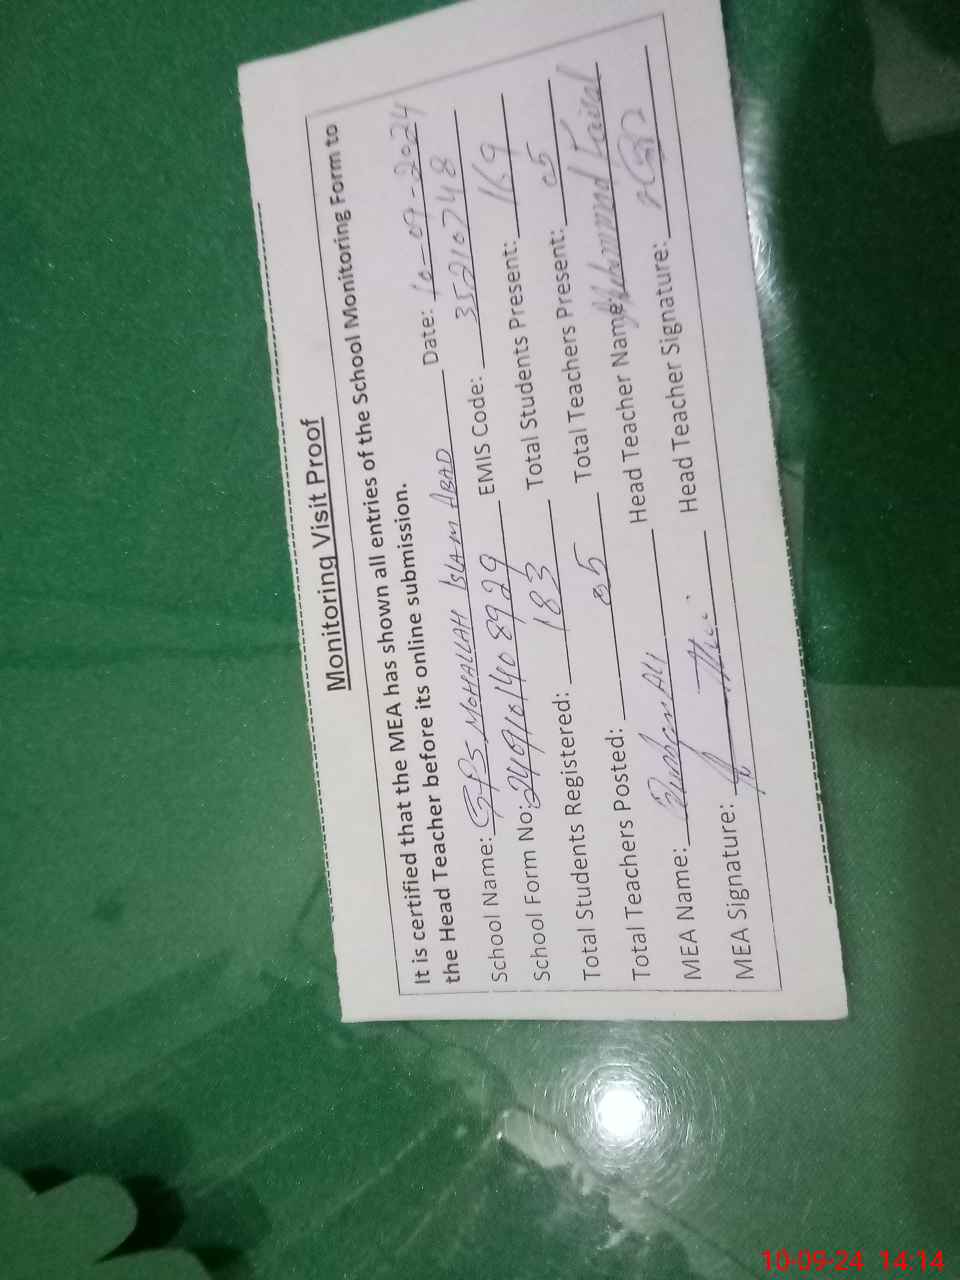 Monitoring Visit Proof
It is certified that the MEA has shown all entries of the School Monitoring Form to
the Head Teacher before its online submission.
School Name: GPS MOHALLAH ISLAM ABAD Date: 10-09-2024
School Form No: EMIS Code: 35210748
Total Students Registered: 183 Total Students Present: 169
Total Teachers Posted: 05 Total Teachers Present: 05
MEA Name: Ali Head Teacher Name: Muhammad Faisal
MEA Signature: Head Teacher Signature:
10-09-24 14:14